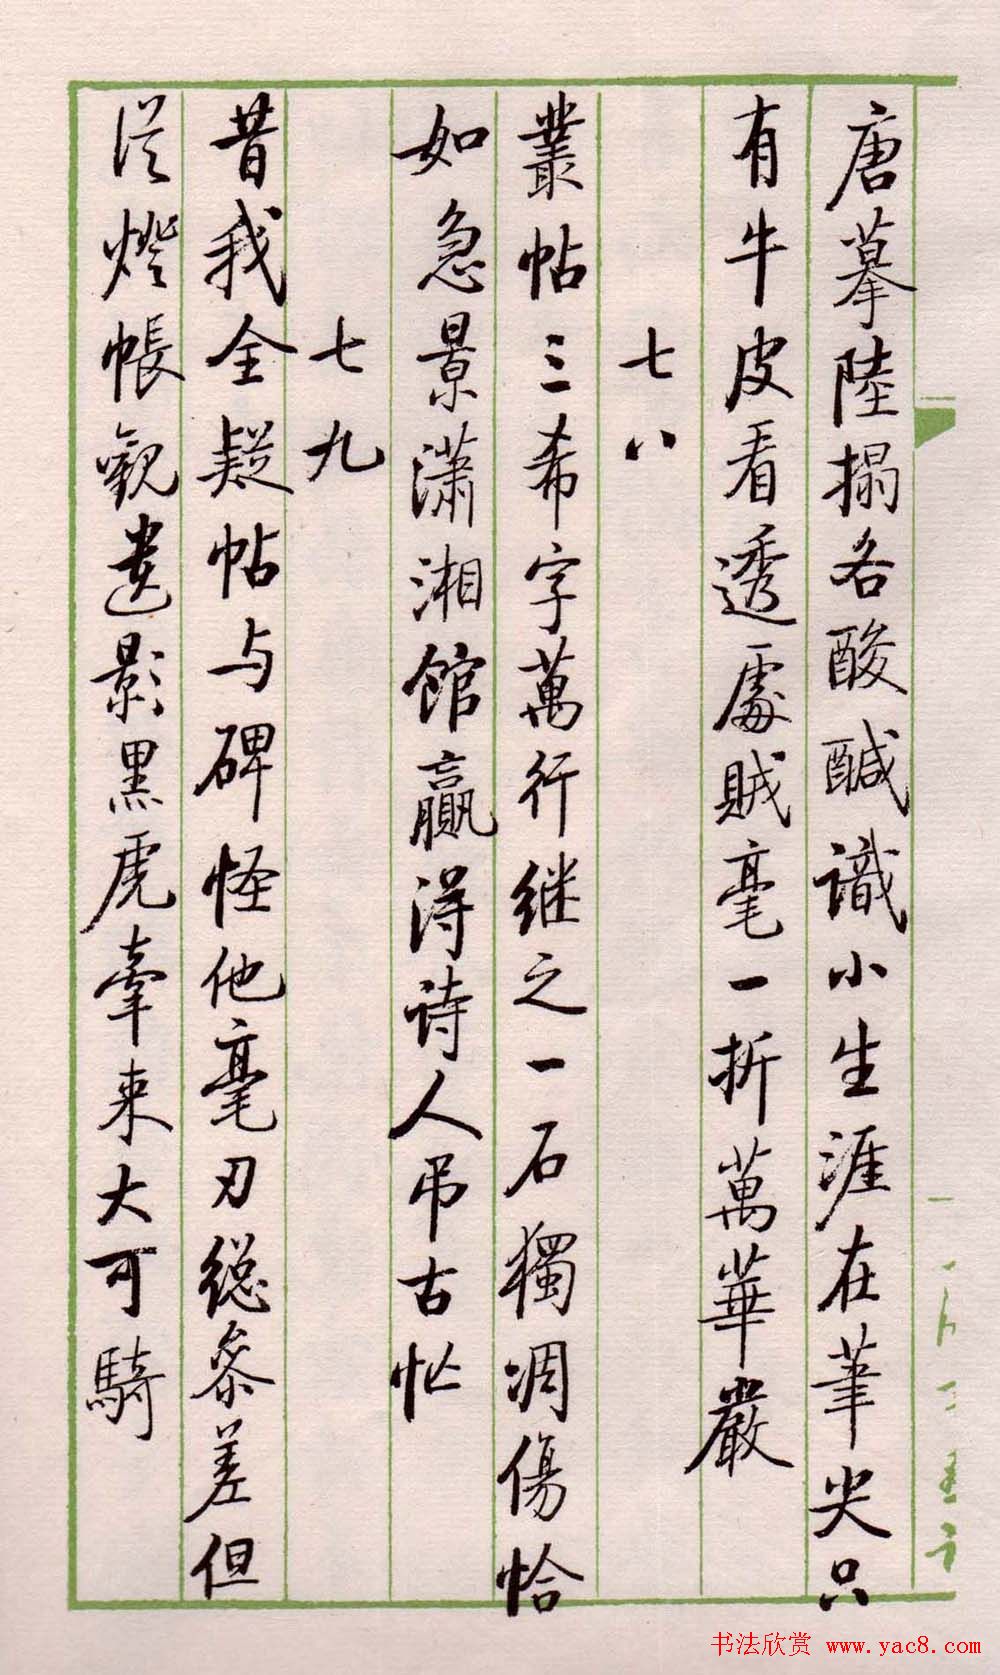 唐摹陸搨各酸醎識小生涯在筆尖只
有牛皮看透處賊毫一折萬華嚴
七八
叢帖三希字萬行继之一石獨凋傷恰
如急景瀟湘館贏得诗人吊古忙
七九
昔我全疑帖与碑怪他毫刃総參差但
從燈帳觀遺影黑虎牽来大可騎
书法欣赏 www.yac8.com